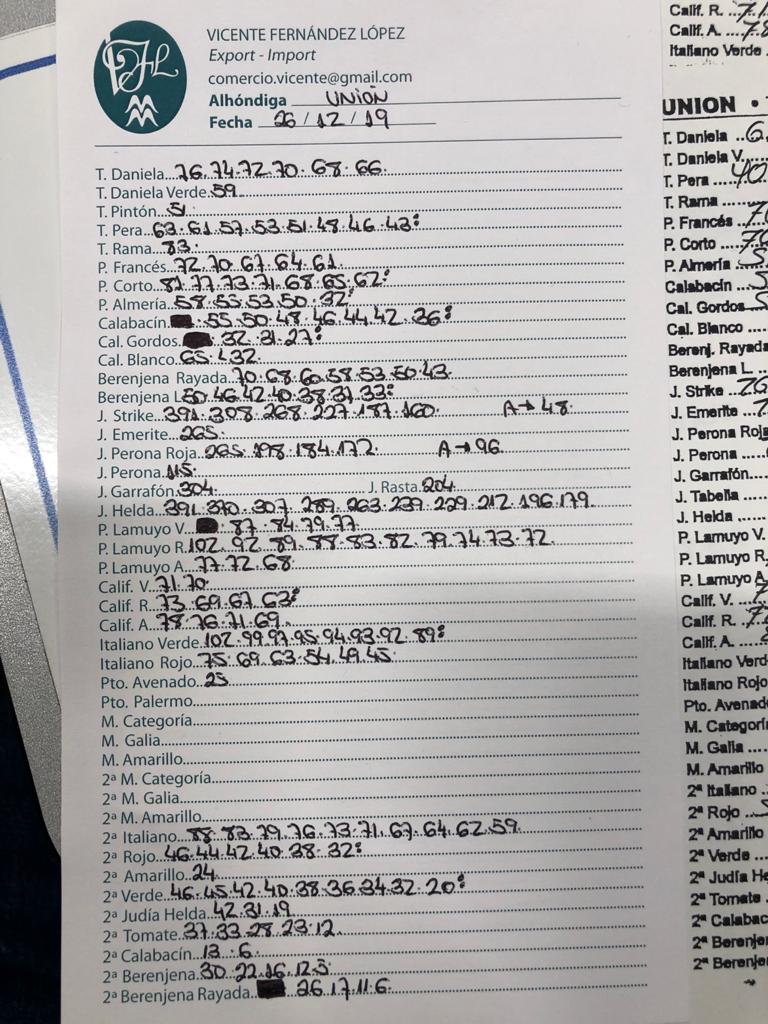 VICENTE FERNÁNDEZ LÓPEZ
Export - Import
comercio.vicente@gmail.com
Alhóndiga UNIÓN
Fecha 26/12/19
T. Daniela...76.74.72.70.68.66.
T. Daniela Verde.59.
T. Pintón..51.
T. Pera...63.61.57.53.51.48.46.43:
T. Rama...83.
P. Francés...72.70.67.64.61.
P. Corto...81.77.73.71.68.65.62:
P. Almería...58.55.53.50.32:
Calabacín...55.50.48.46.44.42.36:
Cal. Gordos...32.31.27:
Cal. Blanco...65.432.
Berenjena Rayada...70.68.60.58.53.50.43.
Berenjena L.50.46.42.40.38.37.33:
J. Strike...391.308.268.227.187.160. A→48.
J. Emerite...265.
J. Perona Roja...265.198.184.172. A→96.
J. Perona.115.
J. Garrafón.304. J. Rasta.204.
J. Helda...391.370.307.289.263.239.229.212.196.179.
P. Lamuyo V...87.84.79.77.
P. Lamuyo R.102.92.89.88.83.82.79.74.73.72.
P. Lamuyo A...77.72.68.
Calif. V...71.70.
Calif. R...73.69.67.63:
Calif. A...78.76.71.69.
Italiano Verde.102.99.97.95.94.93.92.89:
Italiano Rojo...75.69.63.54.49.45.
Pto. Avenado...25
Pto. Palermo
M. Categoría
M. Galia
M. Amarillo
2ª M. Categoría
2ª M. Galia
2ª M. Amarillo
2ª Italiano...88.83.79.76.73.71.67.64.62.59.
2ª Rojo...46.44.42.40.38.32:
2ª Amarillo.24.
2ª Verde...46.45.42.40.38.36.34.32.20:
2ª Judía Helda..42.31.19.
2ª Tomate...37.33.28.23.12.
2ª Calabacín...13.6.
2ª Berenjena.30.22.16.12.5.
2ª Berenjena Rayada...26.17.11.6.
Calif. R.
Calif. A.
Italiano Verde
UNION •
T. Daniela
T. Daniela V.
T. Pera ...40
T. Rama
P. Francés
P. Corto
P. Almería
Calabacín
Cal. Gordos
Cal. Blanco
Berenj. Rayada
Berenjena L.
J. Strike
J. Emerite
J. Perona Roja
J. Perona
J. Garrafón
J. Tabella
J. Helda
P. Lamuyo V.
P. Lamuyo R.
P. Lamuyo A
Calif. V.
Calif. R.
Calif. A.
Italiano Verd
Italiano Rojo
Pto. Avenad
M. Categorí
M. Galia
M. Amarillo
2ª Italiano
2ª Rojo
2ª Amarillo
2ª Verde
2ª Judía He
2ª Tomate
2ª Calabac
2ª Berenje
2ª Berenje